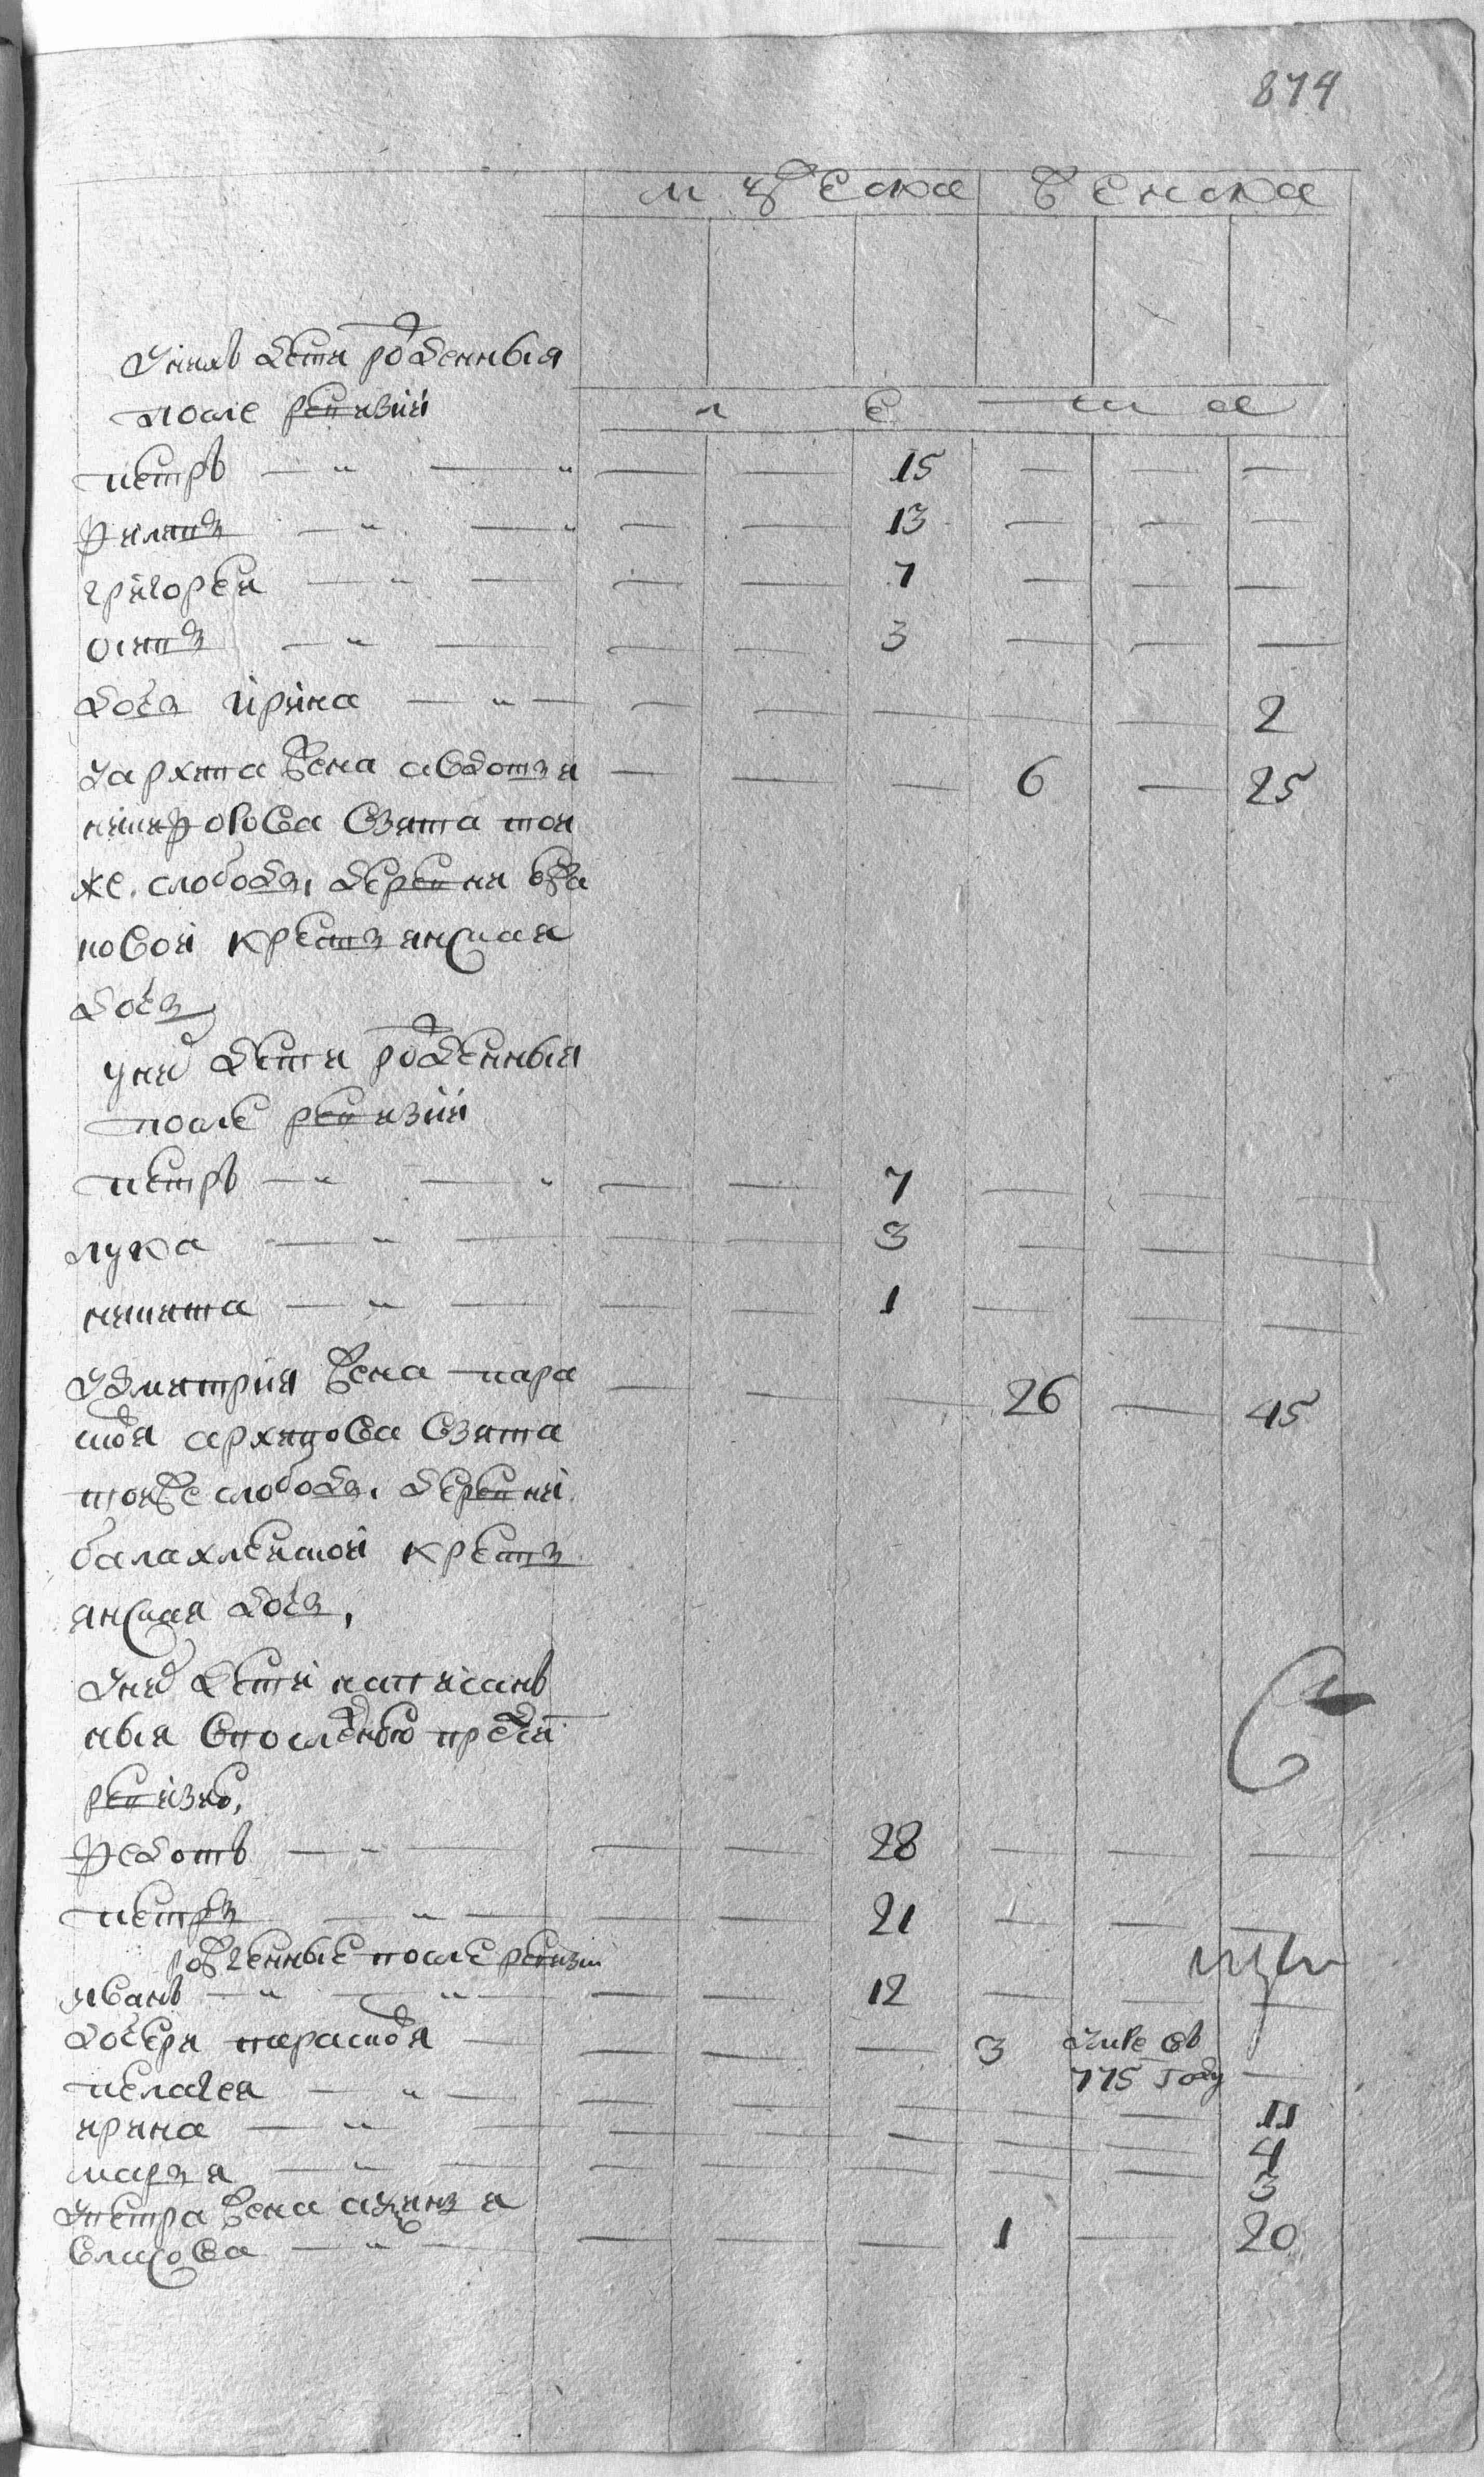 874
мужеска женска
У нихъ дети рожденныя
после ревизии
л е т а
петръ 15
филипъ 13
григорей 7
осипъ 3
дочь ирина 2
У архипа жена авдотья 6 25
никифорова взята той
же слободы, деревни
новой крестьянская
дочь
у ней дети рожденныя
после ревизии
петръ 7
лука 3
никита 1
У дмитрия жена пара
сковя архипова взята
тойже слободы, деревни
балахлейской кресть
янская дочь,
У ней дети написанъ
ныя впоследнюю пред сим
ревизию,
федотъ 28
петръ 21
рожденные после ревизии
иванъ 12
дочери парасковя 3 умре въ
775 году
пелагея 11
ирина 4
марья 3
У петра жена аксинья
власова 1 20